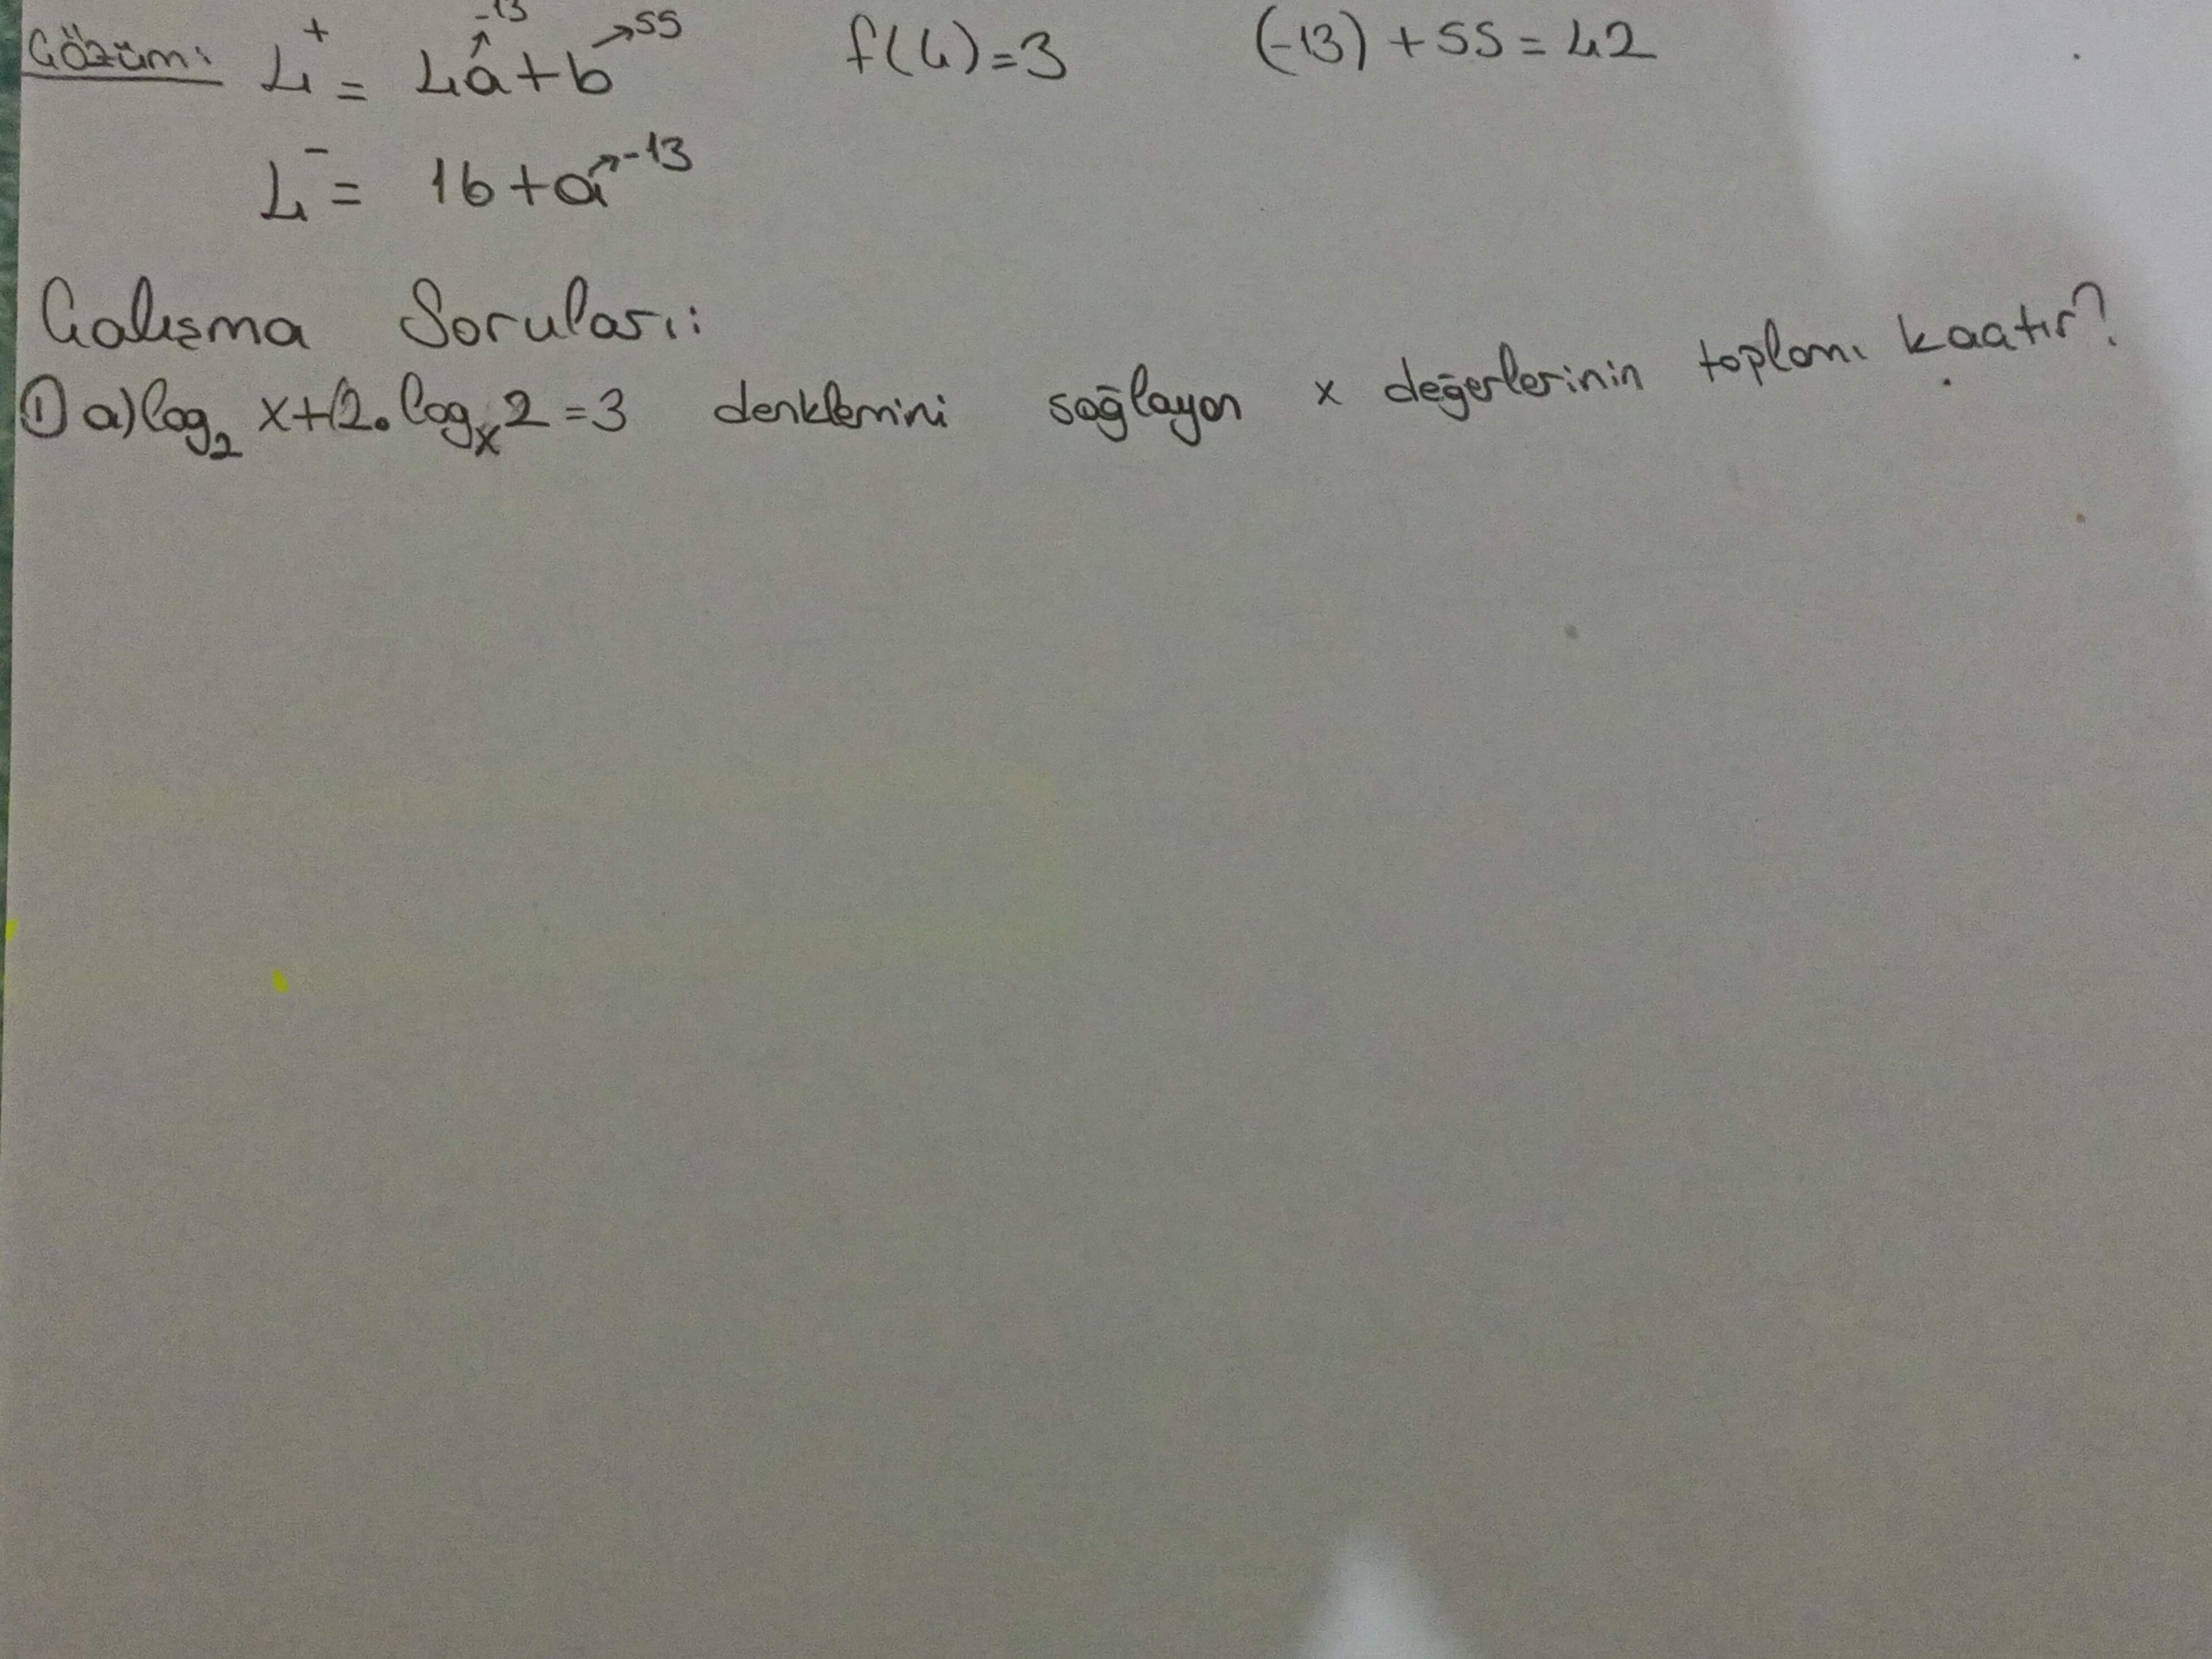 Çözüm: L⁺ = 4a→-13 + b→55 f(4)=3 (-13)+55=42
L⁻ = 16+a→-13
Çalışma Soruları:
① a) log₂ x+2.logₓ2=3 denklemini sağlayan x değerlerinin toplamı kaçtır?